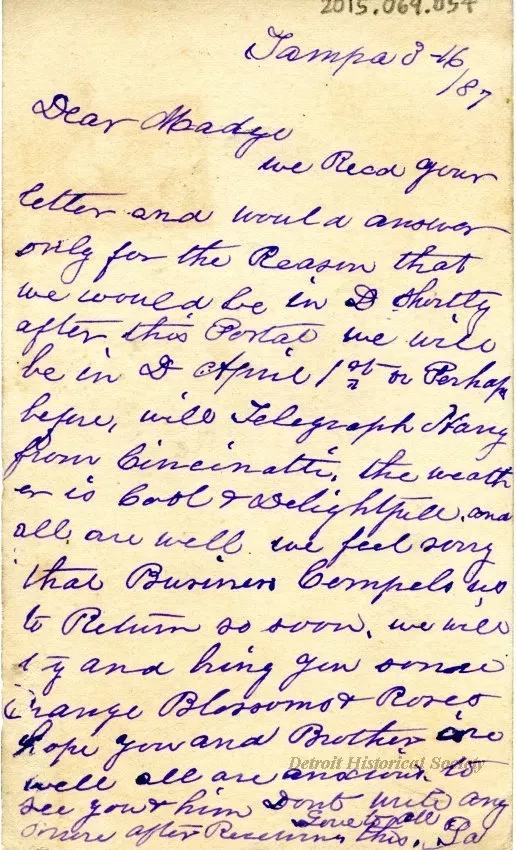 2015.069.054
Tampa 3-16
/87
Dear Madge
we Recd your
letter and would answer
only for the Reason that
we would be in D Shortly
after this Postal we will
be in D April 1st or Perhaps
before, will Telegraph Harry
from Cincinatti, the weath
er is Cool & Delightfull and
all are well we feel sorry
that Business Compels us
to Return so soon, we will
try and bring you some
Orange Blossoms & Roses
hope you and Brother are
well all are anxious to
see you & him Dont write any
more after Receiving this. Love to all Pa
Detroit Historical Society